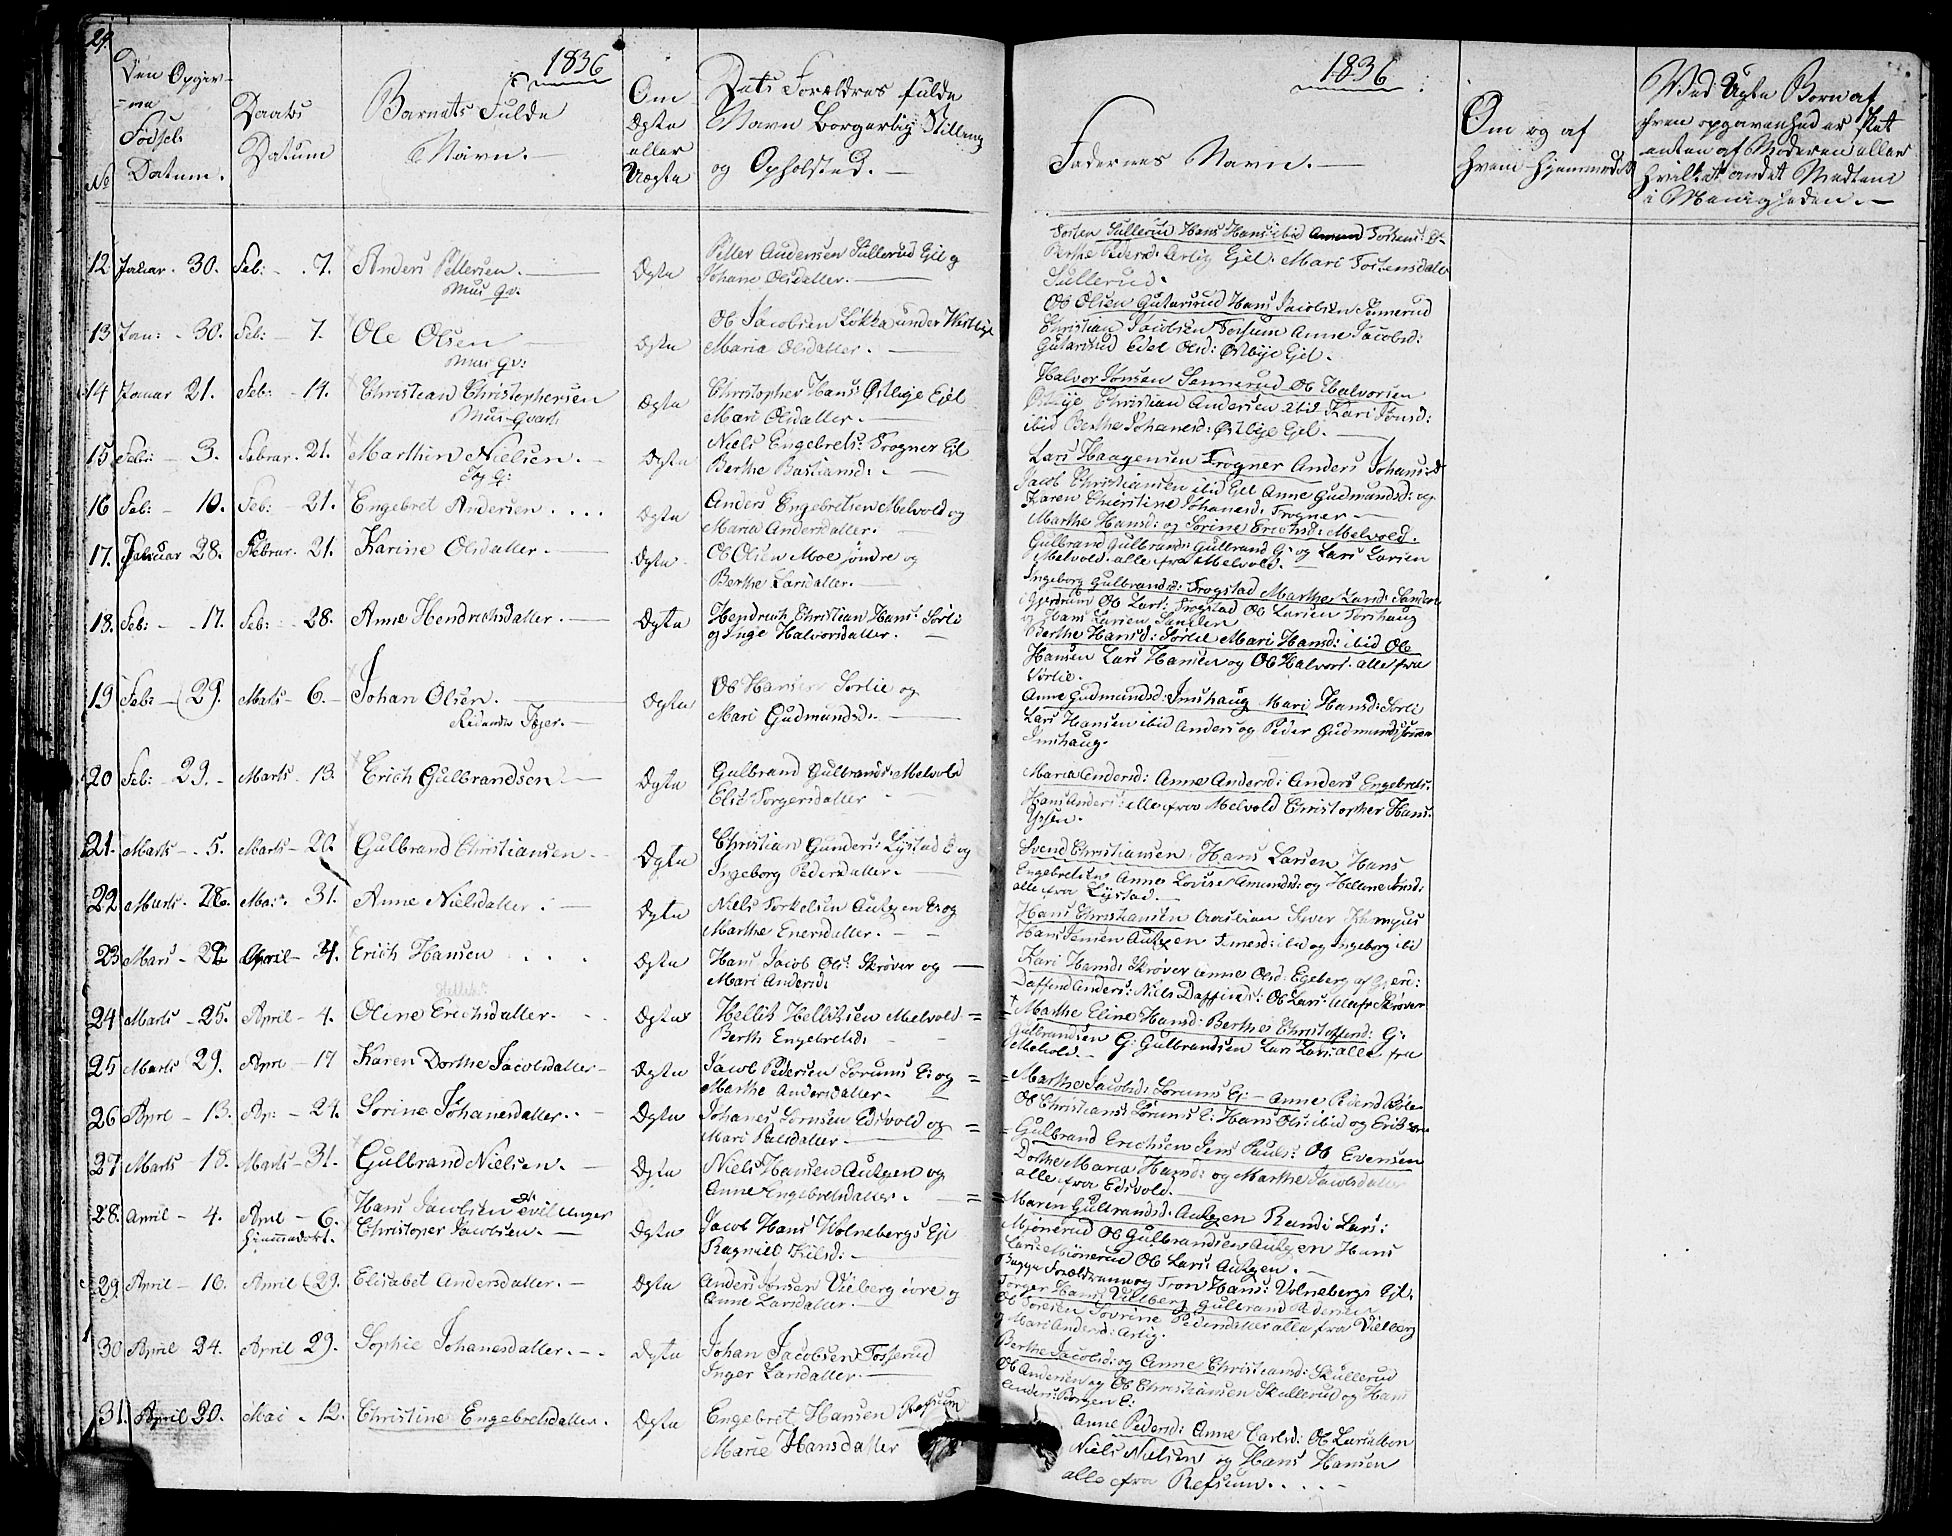 24.
1836
Den Opgiv-
-ne
Fødsels
Datum.
No
Daabs
Datum
Barnets Fulde
Navn.
Om
Ægte
eller
Uægte
Dets Forældres fulde
Navn borgerlig Stilling
og Opholsted.
12 Januar. 30. Feb: - 7. Anders Pettersen.
Mus Gv:
Ægte
Petter Andersen Sullerud Ejl og
Johane Olsdatter.
13 Jan: - 30. Feb: - 7. Ole Olsen
Mus Gv:
Ægte
Ole Jacobsen Løkka under
Maria Olsdatter.
14 Januar 21. Feb: - 14. Christean Christophersen
Mus-Gvart
Ægte
Christopher Hans Østlige Eiel
Mari Olsdatter.
15 Feb: - 3. Febrar. 21. Marthin Nielsen.
Ægte
Niels Engebrets: Frogner Ejl
Berthe Bastiansd:
16 Feb: - 10. Feb: - 21. Engebret Andersen . . . .
Ægte
Anders Engebretsen Melvold og
Maria Andersdatter.
17. Januar 28. Febrar. 21. Karine Olsdatter.
Ægte
Ole Olsen Moe søndre og
Berthe Larsdatter.
18. Feb: - 17. Feb: - 28. Anne Hendrichsdatter.
Ægte
Hendrich Christian Hans: Sørli
og Inge Halvorsdatter.
19 Feb: - 29. Marts - 6. Johan Olsen.
Ægte
Ole Hansen Sørlie og
Mari Gudmundsd:
20 Feb: - 29. - Marts - 13. Erich Gulbrandsen
Ægte
Gulbrand Gulbrands: Melvold
Else Torgersdatter
21. Marts - 5. Marts - 20. Gulbrand Christiansen.
Ægte
Christian Gunders: Lystad E og
Ingeborg Pedersdatter.
22 Marts. 28. Ma:. 31. Anne Nielsdatter.
Ægte
Niels Torkelsen Aulgen E: og
Marthe Enersdatter.
23 Mars - 22 April - 4. Erich Hansen . . . .
Ægte
Hans Jacob Ols: Skrøver og
Mari Andersd:
24 Marts - 25. April - 4. Oline Erichsdatter.
Ægte
Hellik Helliksen Melvold =
Berth Engebretsd:
25 Marts 29. Apri - 17 Karen Dorthe Jacobsdatter -
Ægte
Jacob Pedersen Sørums E: og =
Marthe Andersdatter.
26 April - 13. Ap: - 24. Sorine Johanesdatter.
Ægte
Johanes Sørnsen Edsvold og =
Mari Palsdatter.
27 Marts - 18. Marts - 31. Gulbrand Nielsen.
Ægte
Niels Hansen Aulgen og
Anne Engebretsdatter. =
28. April - 4. April - 6. Hans Jacobsen og tvillinger
Hiemmedøbt. Christoper Jacobsen.
Ægte
Jacob Hans Wolnebergs Eje
Ragnild Kilsd:
29. April - 16. April 29. Elisabet Andersdatter.
Ægte
Anders Jonsen Vilberg øvre og
Anne Larsdatter.
30 April 24. April 29. Sophie Johanesdatter.
Ægte
Johan Jacobsen Fosserud
Inger Larsdatter.
31. April 20. Mai - 12. Christine Engebretsdatter.
Ægte
Engebret Hansen Refsum
Marie Hansdatter
1836
Fadernes Navn.
Om og af
hvem hjemmedøbt
Ved Uægte Børn af
hvem opgivenhed er skeet
enten af Moderen eller
hvilket andet Medlem
i Menigheden.
Torsten Sullerud Hans Hans: ibid
Berthe Peders: Arlig Ejel. Mari Torstensdatr
Sullerud.
Ole Olsen Gutersrud Hans Jacobsen Semerud
Christian Jacobsen Forsum Anne Jacobsd:
Gutersrud Edel Olsd: Østbye Ejel.
Halvor Jonsen Sennerud Ole Halvorsen
Østbye Christian Andersen ibid Kari Jonsd:
ibid Berthe Johanesd: Østbye Ejel.
Lars Haagensen Frogner Anders Johans:
Jacob Christiansen ibid Ejel Anne Gudmundsd: og
Karen Christine Johanesd: Frogner
Marthe Hansd: og Sorine Erichsd: Melvold.
Gulbrand Gulbrands: Gulbrand G: og Lars Larsen
Melvold. alle fra Melvold.
Ingeborg Gulbrandsd: Frogstad Marthe Larsd: Sanden
i Gjerdrum Ole Lars: Frogstad Ole Larsen Torshaug
og Hans Larsen Sanden
Berthe Hansd: Sørlie Mari Hansd: ibid Ole
Hansen Lars Hansen og Ole Halvors: alle fra
Sørlie.
Anne Gudmundsd: Imshaug Mari Hansd: Sørli
Lars Hansen ibid Anders og Peder Gudmunds
Imshaug.
Maria Andersd: Anne Andersd: Anders Engebrets:
Hans Anders: alle fraa Melvold Christopher Hans:
Svend Christiansen, Hans Larsen, Hans
Engebretsen Anne Lovise Amundsd: og Hellene Jonsd:
alle fra Lystad.
Hans Christiansen
Hans Jensen Aulgen ibid og Ingeborg ibi
Kari Hansd: Skrøver Anne Olsd: Egeberg af Gjerd:
Daffend Anders: Niels Daffinds: Ole Lars: alle fr Skrøver
Marthe Eline Hansd: Berthe Christoffersd: G:
Gulbrandsen G: Gulbrandsen Lars Lars: alle fra
Melvold.
= Marthe Jacobsd: Sørums Ej - Anne
Ole Christians: Sørums E: Hans Ols: ibid og Erik
= Gulbrand Erichsen Jens Pauls: Ole Evensen
Dorthe Maria Hansd: og Marthe Jacobsdatter
alle fra Edsvold.
= Maren Gulbrandsd: Aulgen Randi Lars:
Mjønerud Ole Gulbrandsen Aulgen Hans
Lars: Miønerud Ole Lars: Aulgen.
Begge Forældrenne og Tron Hans: Volnebergs Ejl.
Torger Hans Vilberg Gulbrand Pedersen
Ole Torersen Sovrine Pedersdatter alle fra Vilberg
og Mari Andersd: Arlig.
Berthe Jacobsd: og Anne Christiansd: Skullerud
Ole Andersen og Ole Christiansen Skullerud og Hans
Anders: Borgen E:
Anne Pedersd: Anne Carlsd: Ole
Niels Nielsen og Hans Hansen
alle fra Refsum. . . . -